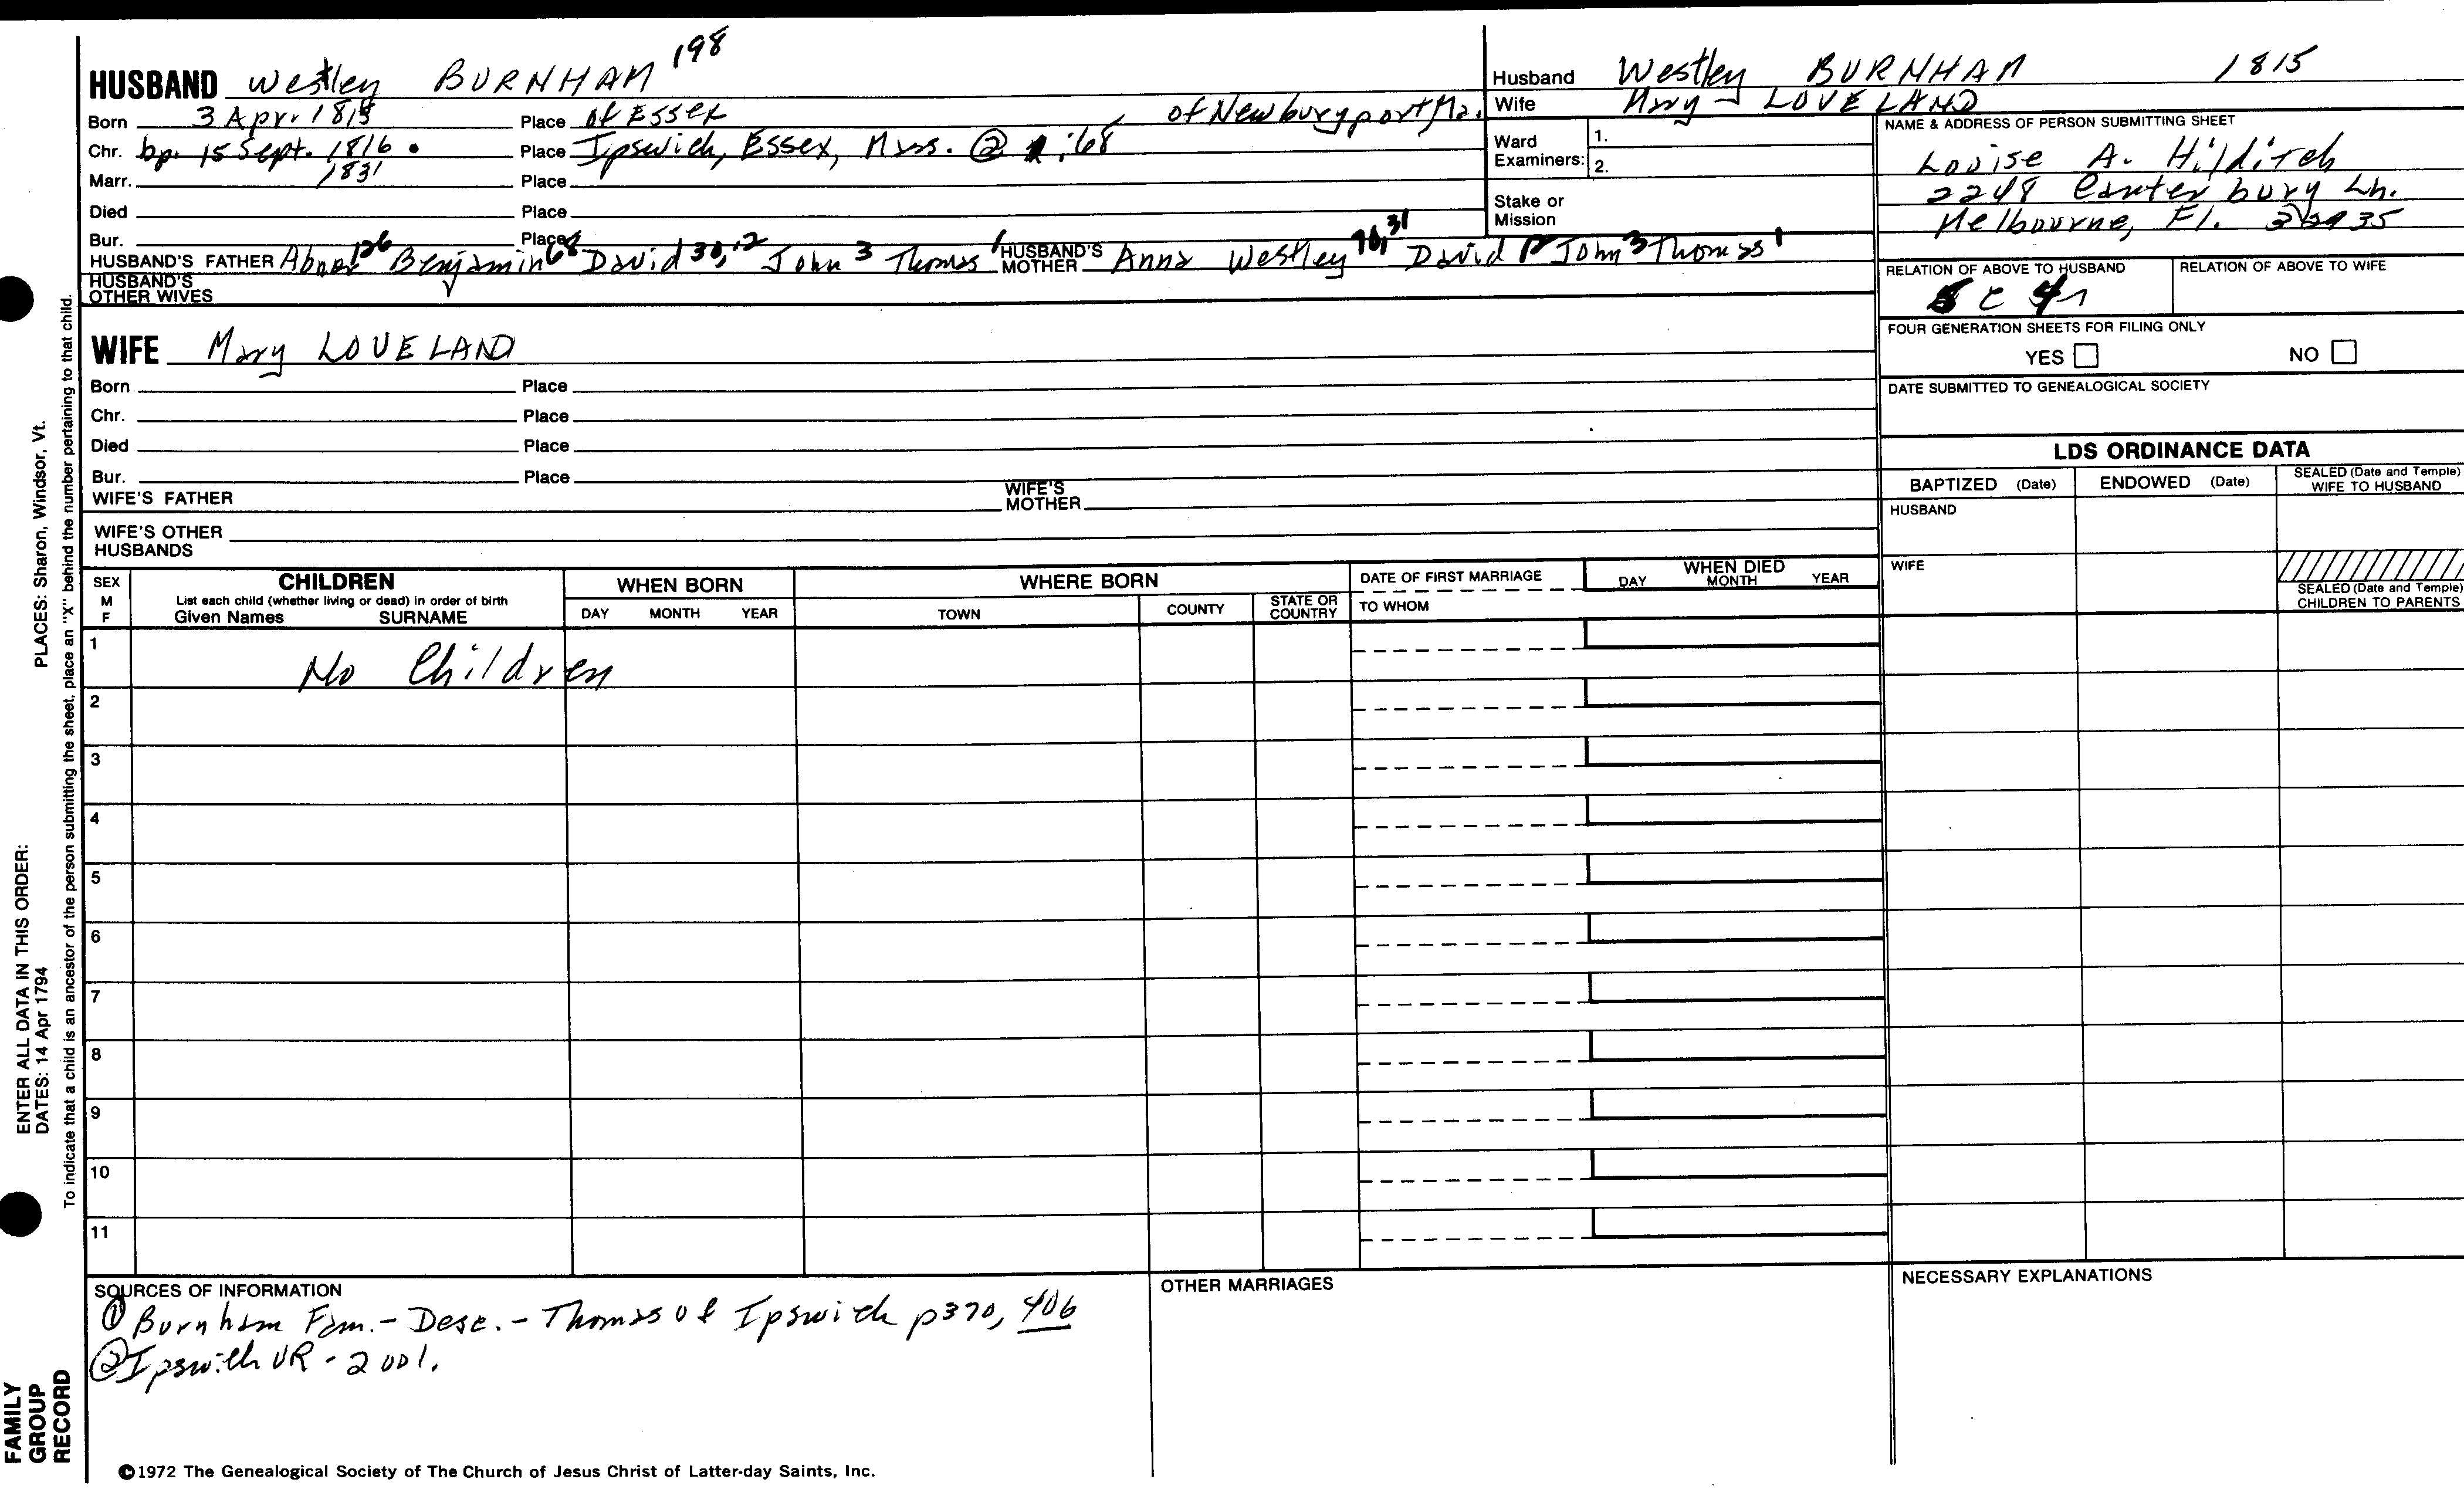 HUSBAND Westley BURNHAM 198
Born 3 Apr. 1815 Place of Essex of Newburyport Ma.
Chr. bp. 15 Sept. 1816 Place Ipswich, Essex, Mass. @ 1:68
Marr. 1831 Place
Died Place
Bur. Place
HUSBAND'S FATHER Abner 126 Benjamin 68 David 30, 12 John 3 Thomas 1 HUSBAND'S MOTHER Anna Westley 70, 31 David 12 John 3 Thomas 1
HUSBAND'S OTHER WIVES
WIFE Mary LOVELAND
Born Place
Chr. Place
Died Place
Bur. Place
WIFE'S FATHER WIFE'S MOTHER
WIFE'S OTHER HUSBANDS
Husband Westley BURNHAM 1815
Wife Mary LOVELAND
Ward Examiners: 1.
2.
Stake or Mission
NAME & ADDRESS OF PERSON SUBMITTING SHEET
Louise A. Hilditch
2248 Canterbury Ln.
Melbourne, Fl. 32935
RELATION OF ABOVE TO HUSBAND RELATION OF ABOVE TO WIFE
FOUR GENERATION SHEETS FOR FILING ONLY
YES NO
DATE SUBMITTED TO GENEALOGICAL SOCIETY
LDS ORDINANCE DATA
BAPTIZED (Date) ENDOWED (Date) SEALED (Date and Temple) WIFE TO HUSBAND
HUSBAND
WIFE
SEALED (Date and Temple) CHILDREN TO PARENTS
SEX M F CHILDREN WHEN BORN WHERE BORN DATE OF FIRST MARRIAGE WHEN DIED
List each child (whether living or dead) in order of birth
Given Names SURNAME DAY MONTH YEAR TOWN COUNTY STATE OR COUNTRY TO WHOM DAY MONTH YEAR
1 No Children
2
3
4
5
6
7
8
9
10
11
SOURCES OF INFORMATION
① Burnham Fam. - Desc. - Thomas of Ipswich p370, 406
② Ipswich VR - 2 vol.
OTHER MARRIAGES
NECESSARY EXPLANATIONS
©1972 The Genealogical Society of The Church of Jesus Christ of Latter-day Saints, Inc.
ENTER ALL DATA IN THIS ORDER:
DATES: 14 Apr 1794 PLACES: Sharon, Windsor, Vt.
To indicate that a child is an ancestor of the person submitting the sheet, place an "X" behind the number pertaining to that child.
FAMILY
GROUP
RECORD